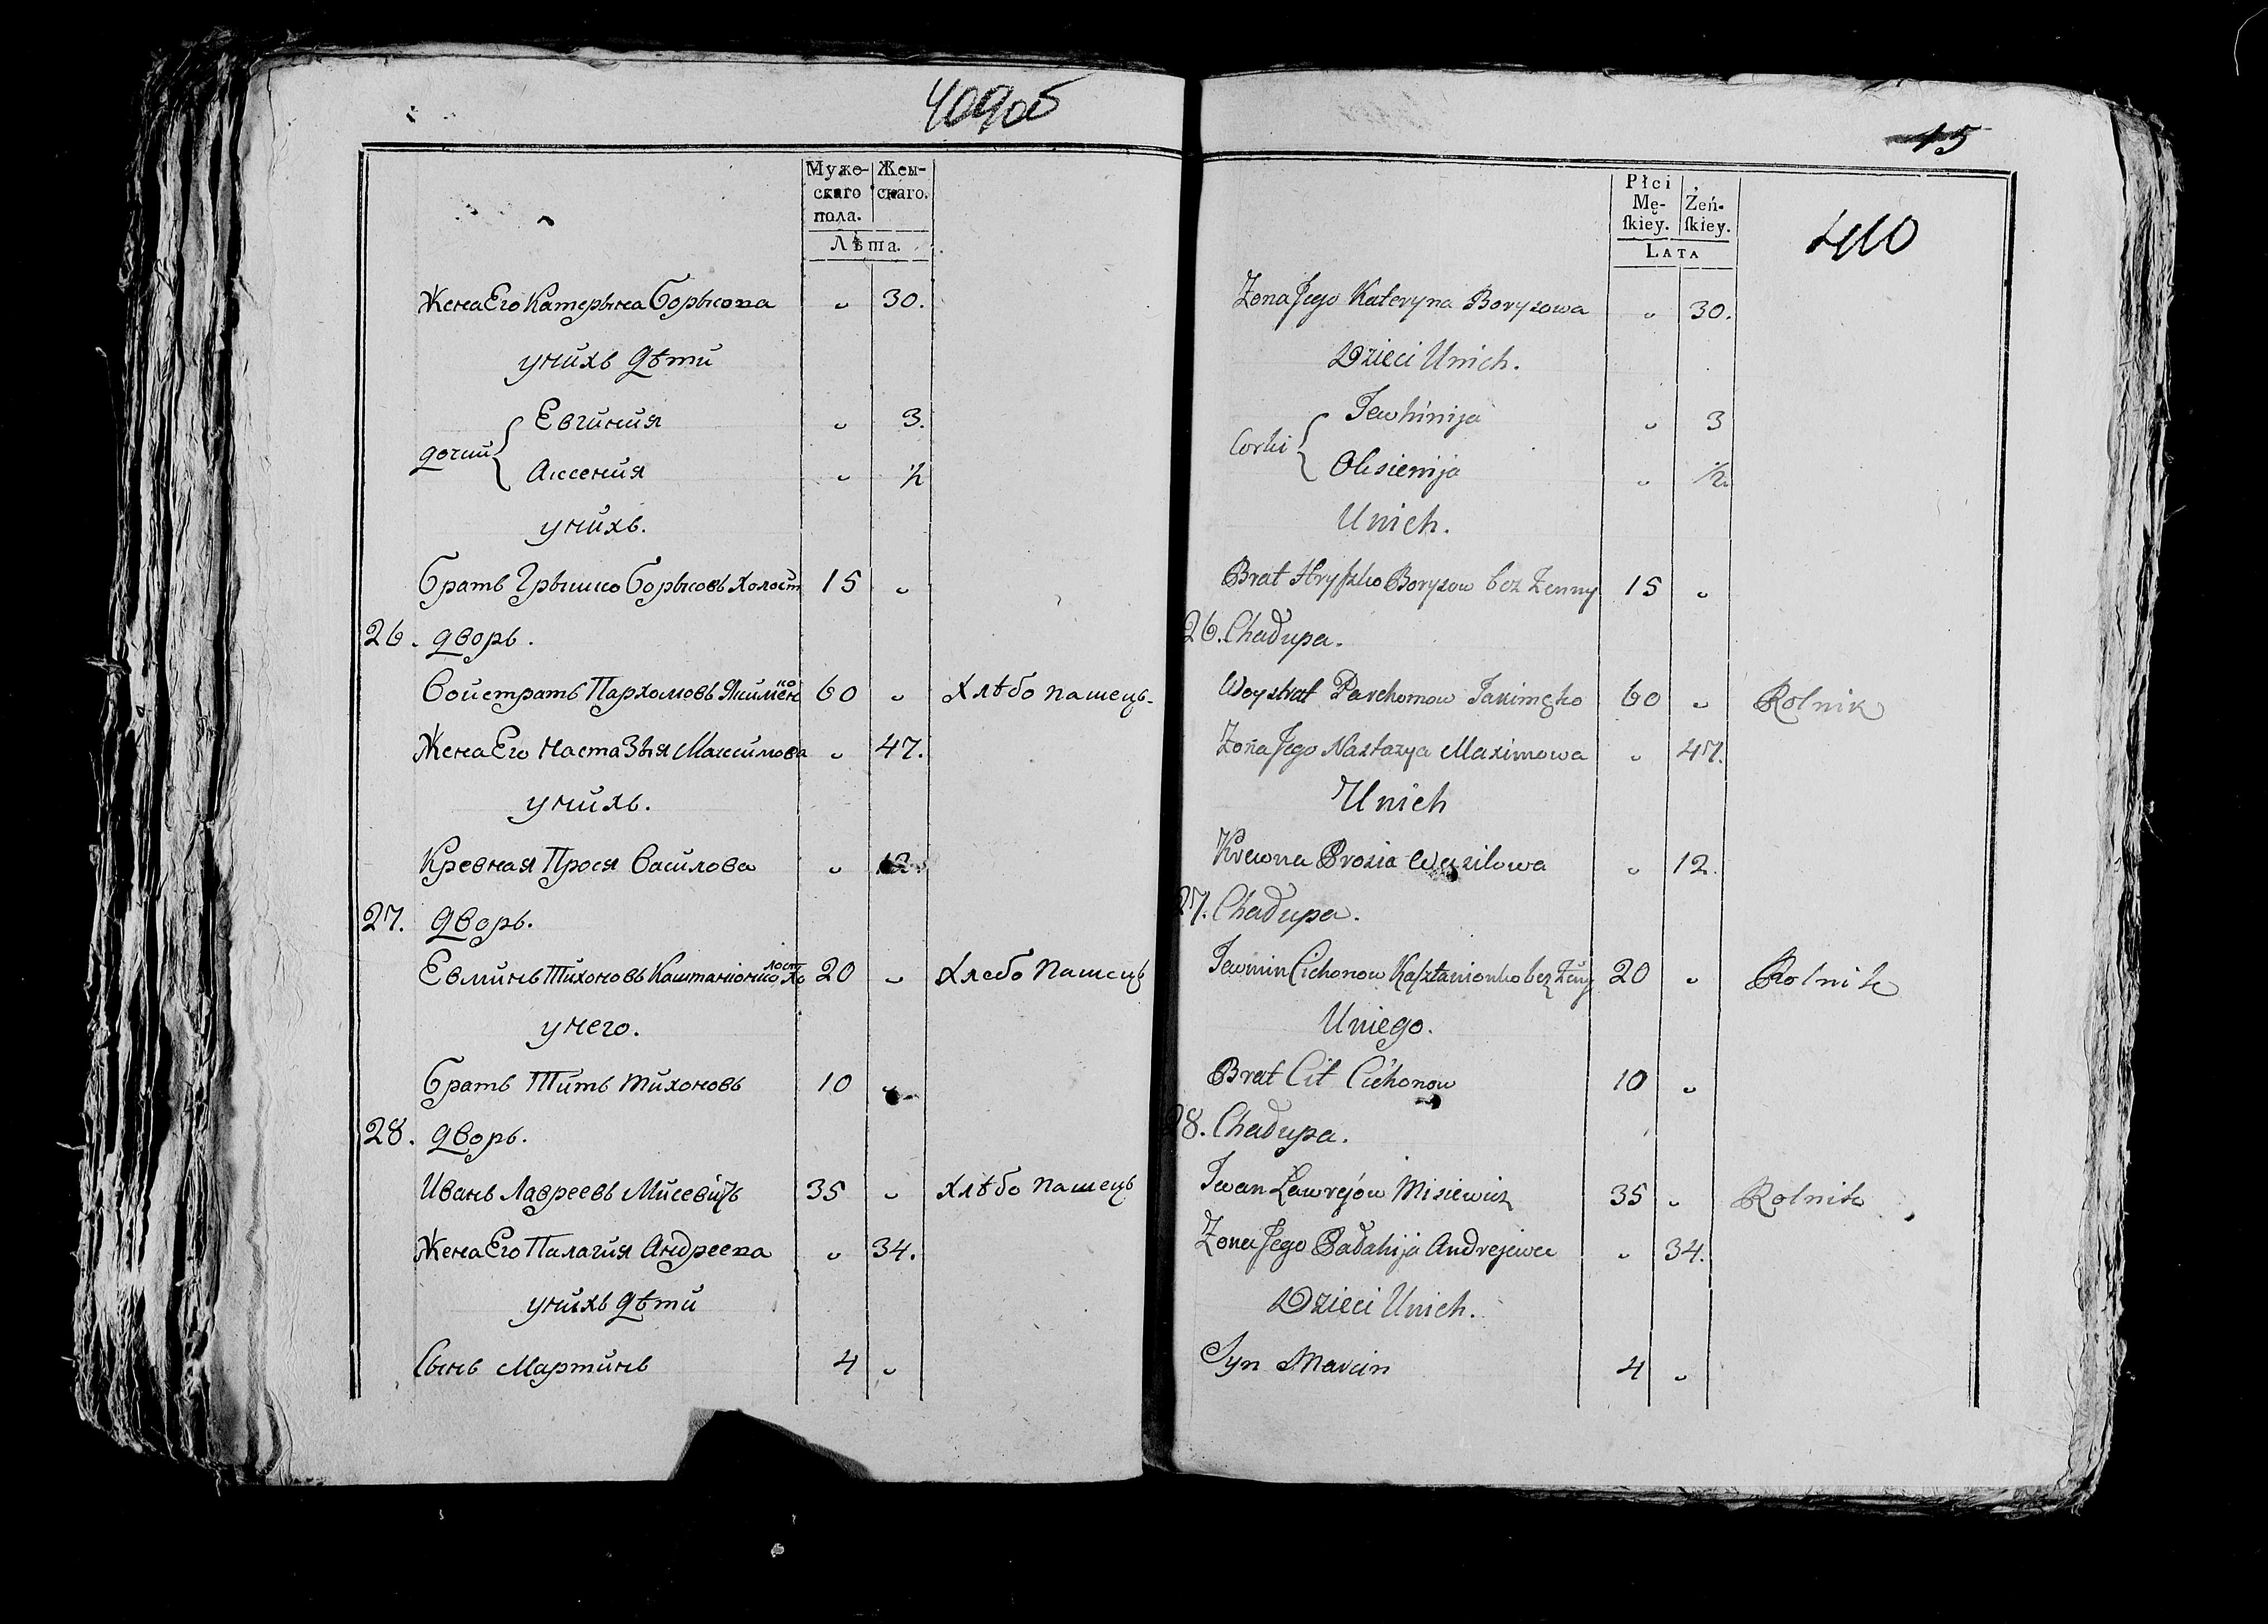 409об
Муже-
скаго
пола.
Жен-
скаго.
Лѣта.
Жена Его Катерына Борысова „ 30.
у нихъ дѣти
дочки { Евгиния „ 3.
Аксения „ 1/2
у нихъ.
братъ Грышко Борысовъ холост 15 „
26. дворъ.
Войстратъ Пархомовъ Якименко 60 „ хлѣбопашецъ.
Жена Его Настазыя Максимова „ 47.
у нихъ.
Кревная Прося Васидова „ 12
27. дворъ.
Евминъ Тихоновъ Каштанюнко, холост 20 „ хлебопашецъ
у него.
братъ Титъ Тихоновъ 10 „
28. дворъ.
Иванъ Лавреевъ Мисевичъ 35 „ хлѣбопашецъ
Жена Его Палагия Андреева „ 34.
у нихъ дѣти
сынъ Мартинъ 4 „
45
410
Płci
Mę-
ſkiey.
Żeń-
ſkiey.
LATA
Zona Jego Kateryna Borysowa „ 30.
Dzieci Unich.
Corki { Jewhinija „ 3
Oksienija „ 1/2.
Unich.
Brat Hryſzko Borysow bez Zenny 15 „
26. Chadupa.
Woystrat Parchomow Jakimęko 60 „ Rolnik
Zona Jego Nastazya Maximowa „ 47.
Unich
Krewna Prosia Wasilowa „ 12.
27. Chadupa.
Jewmin Cichonow Kaſztanionko bez Zeny 20 „ Rolnik
Uniego.
Brat Cit Cichonow 10 „
28. Chadupa.
Iwan Ławrejów Misiewicz 35 „ Rolnik
Zona Jego Padahija Andrejewa „ 34.
Dzieci Unich.
Syn Marcin 4 „